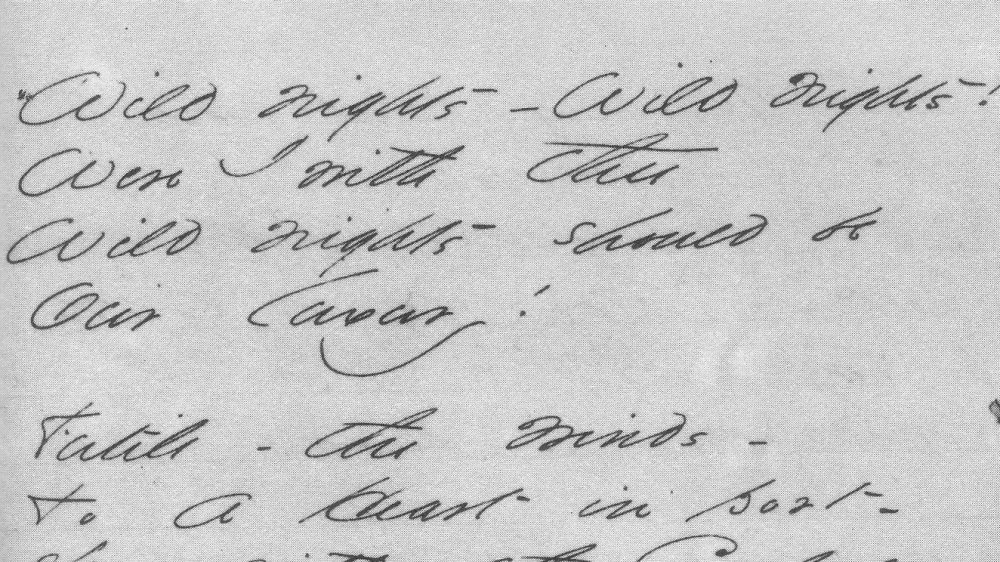 Wild nights - Wild nights!
Were I with thee
Wild nights should be
Our luxury!
Futile - the winds -
To a Heart in port -